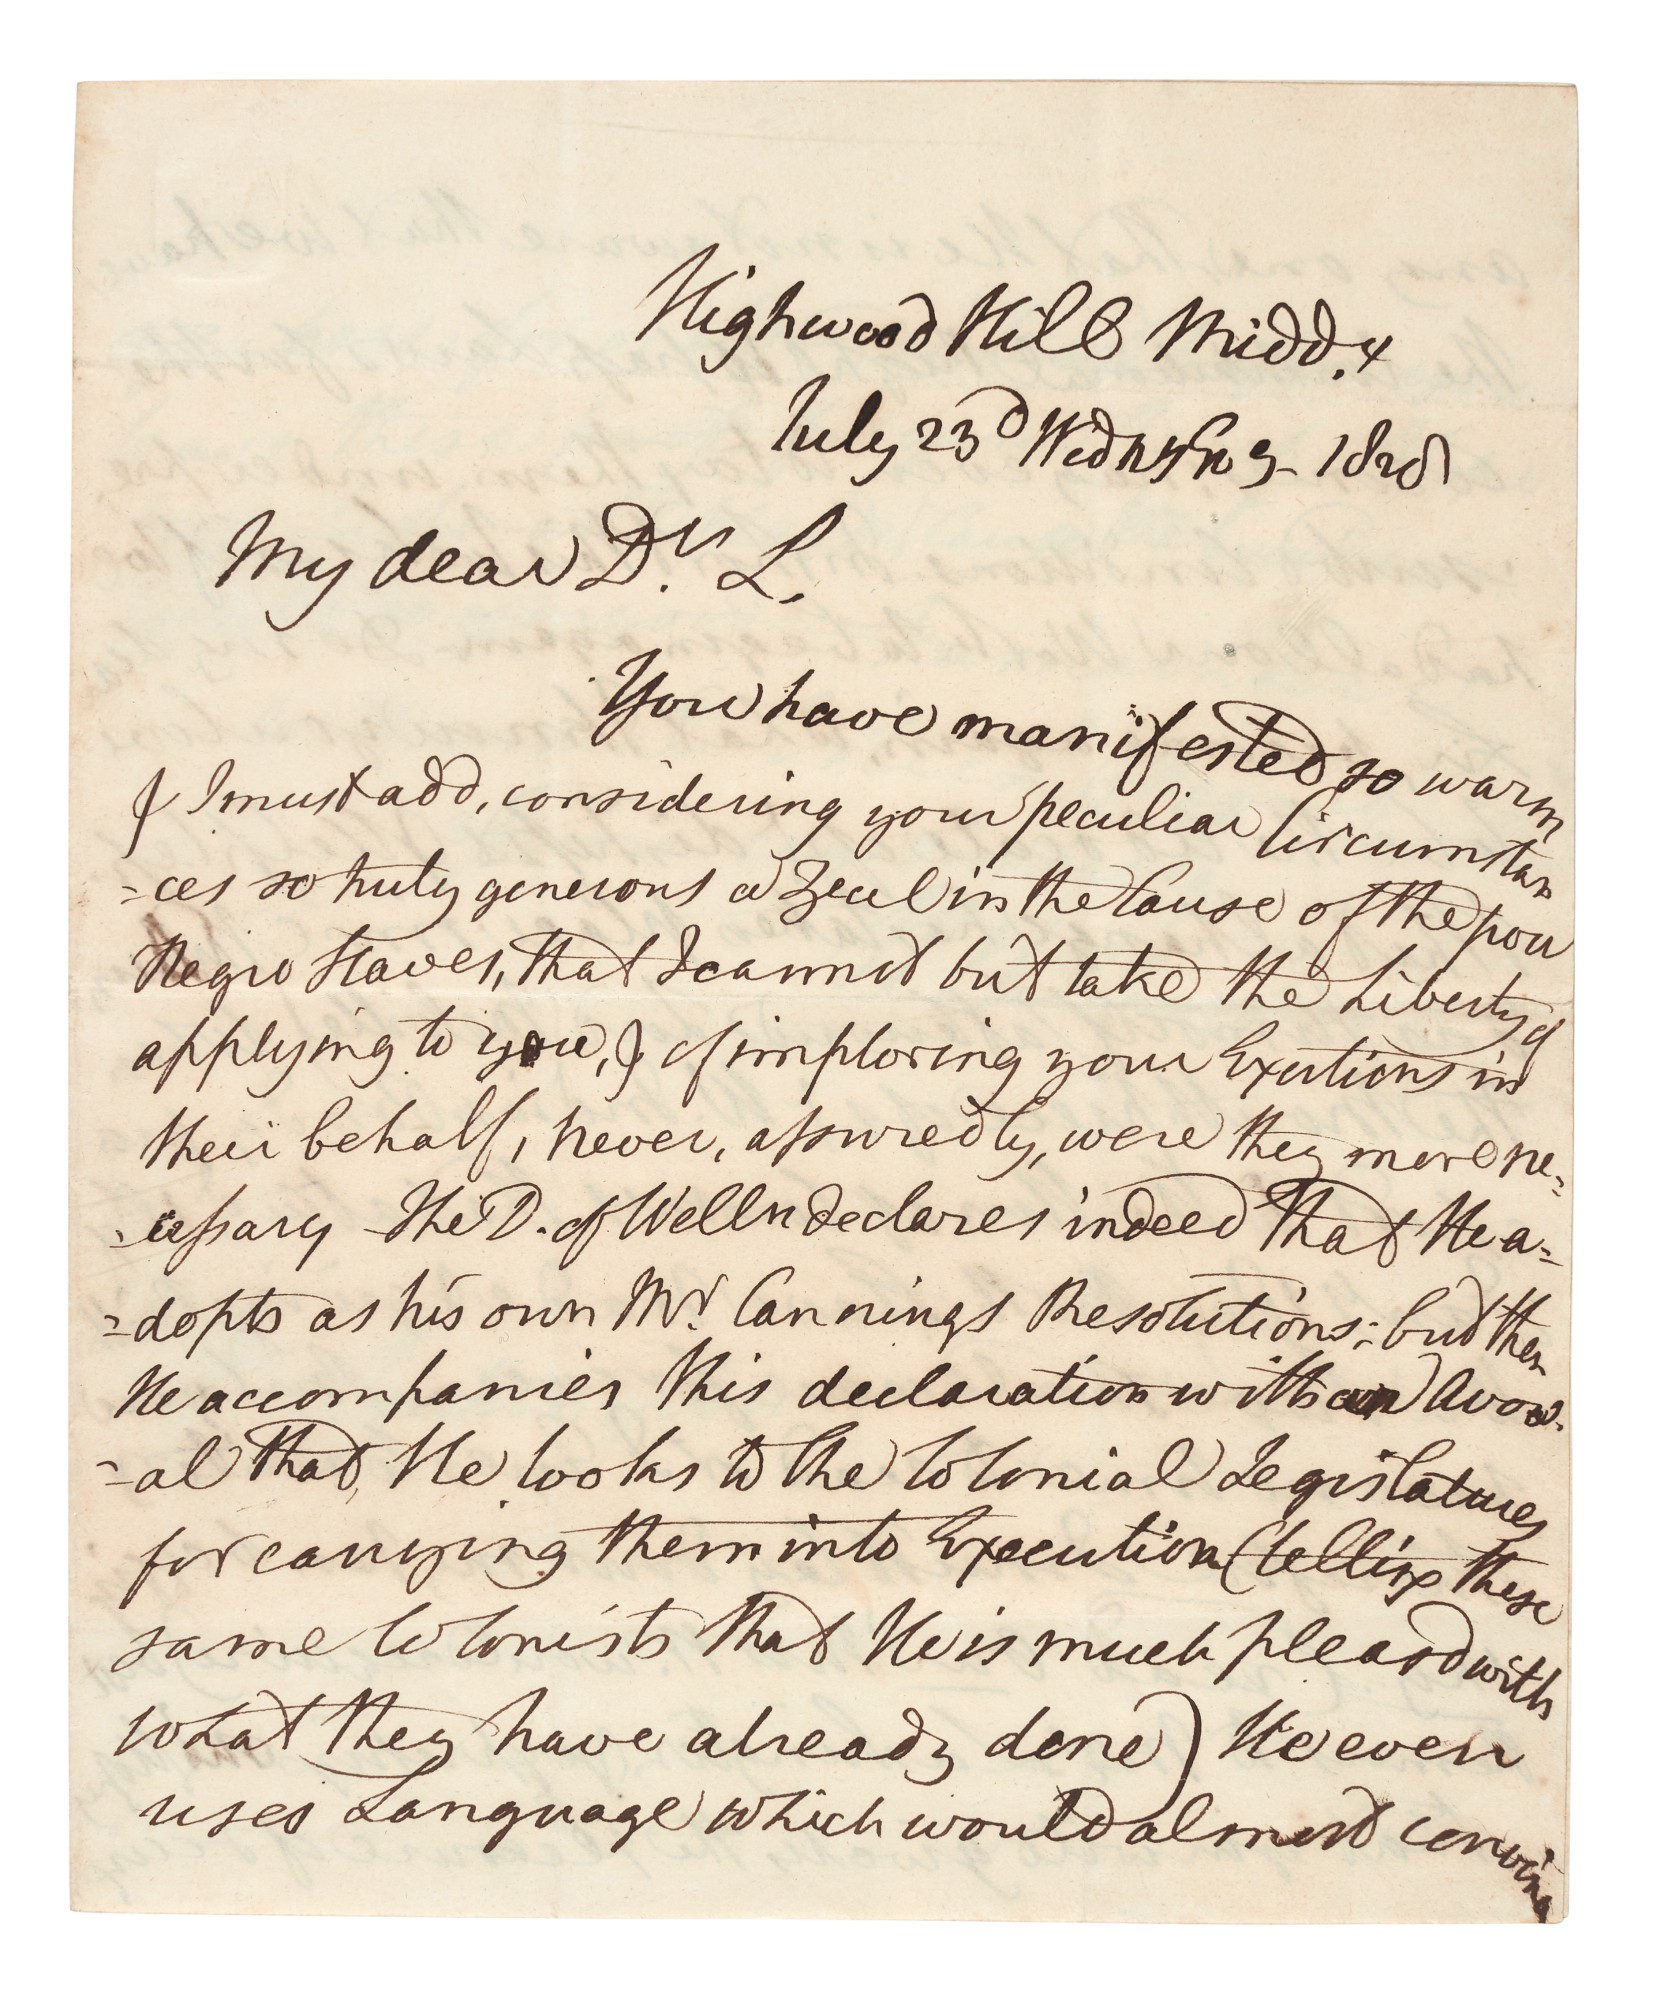 Highwood Hill Midd.x
July 23d Wednsdy 1828
My dear Dr. L.
You have manifested so warm
& I must add, considering your peculiar Circumstan
=ces so truly generous a Zeal in the Cause of the poor
Negro Slaves, that I cannot but take the Liberty of
applying to you, & of imploring your Exertions in
their behalf, Never, assuredly, were they more ne=
=cessary The D. of Welln declares indeed that He a=
=dopts as his own Mr. Cannings Resolutions; but then
He accompanies this declaration with an Avow=
=al that He looks to the Colonial Legislatures
for carrying them into Execution (telling these
same Colonists that He is much pleasd with
what they have already done) He even
uses Language which would almost convince